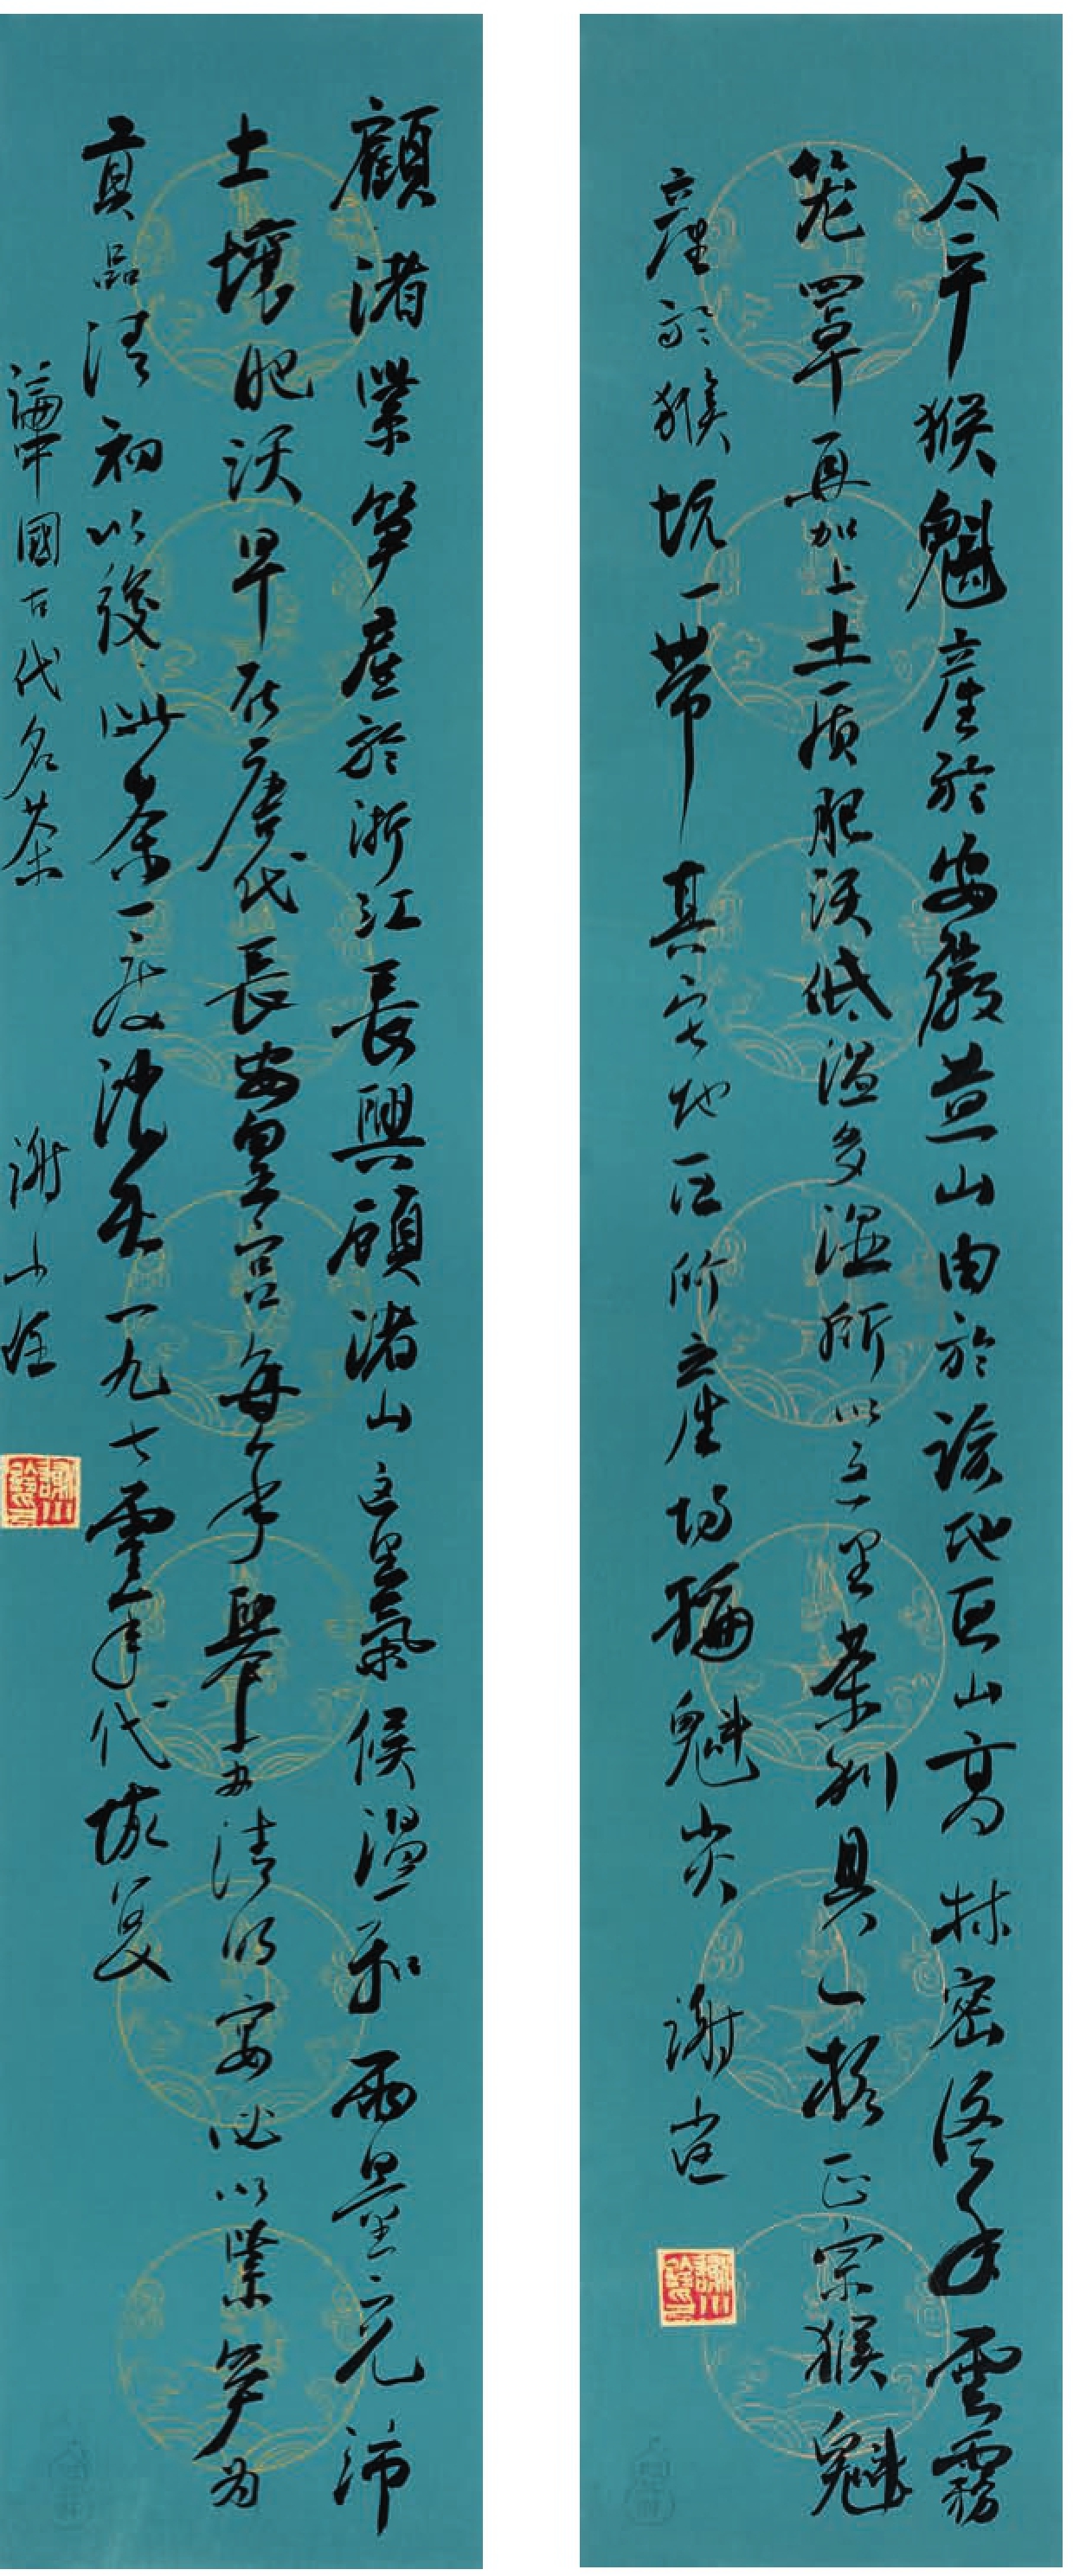 太平猴魁產於安徽黄山由於該地区山高林密終年雲霧
笼罩再加上土质肥沃低溫多濕所以这里茶别具一格正宗猴魁
產於猴坑一带其它地区所產均稱魁尖 謝
顧渚紫笋產於浙江長興顧渚山这里氣候溫和雨量充沛
土壤肥沃早在唐代長安皇宫每年舉办清明宴必以紫笋為
貢品清初以後此茶一度消失一九七零年代恢復
論中國古代名茶 謝小